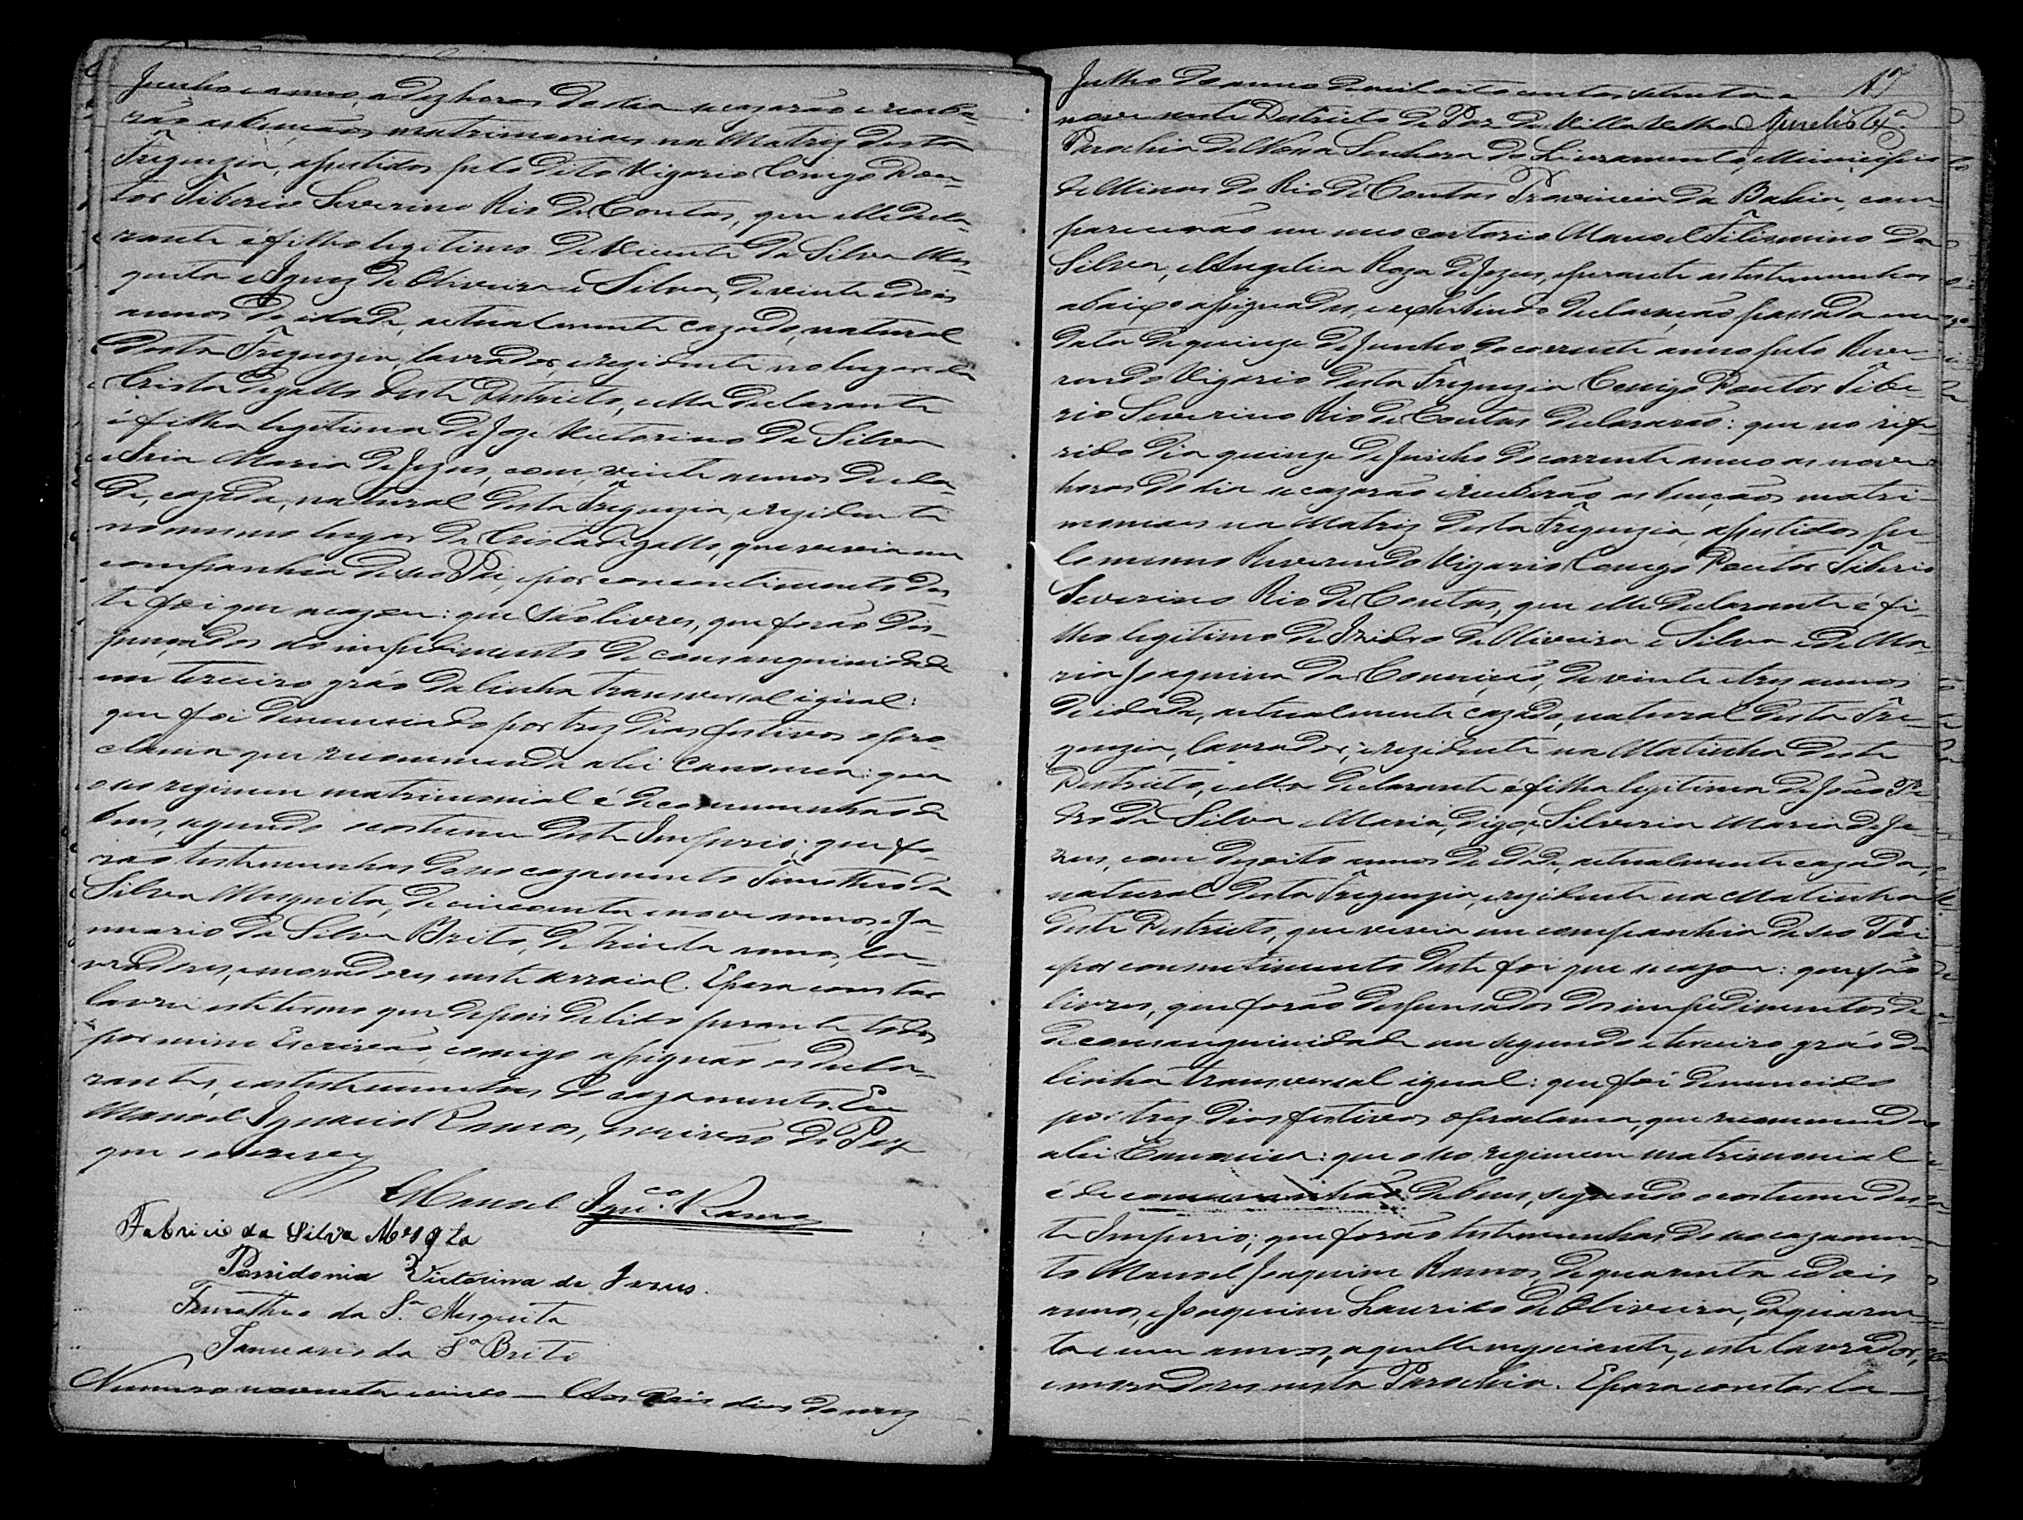 Junho e anno, a dez horas do dia se cazarão e recebe-
rão as bençãos matrimoniaes na Matriz desta
Freguezia, assistidos pelo dito Vigario Conego Dou-
tor Tiberio Severino Rio de Contas, que elle decla-
rante é filho legitimo de Vicente da Silva Mes-
quita e Ignez de Oliveira e Silva, de vinte e dois
annos de idade, actualmente cazado, natural
desta Freguezia, lavrador, e rezidente no lugar da
Crista de gallo deste Districto, ella declarante
é filha legitima de Jozé Victorino da Silva
e Maria de Jezus, com vinte annos de ida-
de, cazada, natural desta Freguezia, e rezidente
no mesmo lugar da Crista de gallo, que vivia em
companhia de seo Pai, e por concentimento des-
te foi que se cazou: que são livres, que forão dis-
pensados do impedimento de consanguinidade
em terceiro gráo da linha transversal igual:
que foi denunciado por trez dias festivos o pro-
clama que recommenda a lei Canonica: que
o seo regimen matrimonial é de communhão de
bens, segundo o costume deste Imperio; que fo-
rão testemunhas do seo cazamento Timotheo da
Silva Mesquita, de cincoenta e nove annos, e Ja-
nuario da Silva Brito, de trinta annos, la-
vradores, e moradores neste arraial. E para constar
lavrei este termo que depois de lido perante todos
por mim Escrivão, comigo assignão os decla-
rantes, e as testemunhas do cazamento. Eu
Manoel Ignacio Ramos, escrivão de Paz
que o escrevy
Manoel Ignco. Ramos
Fabricio da Silva Mesqta
Possidonia Victorina de Jezus.
Timotheo da Sa. Mesquita
Januario da Sa Brito
Numero noventa e cinco — Aos dois dias do mez
17
Julho do anno de mil oito centos setenta e
nove neste Districto de Paz de Villa Velha
Parochia de Nossa Senhora do Livramento, Municipio
de Minas do Rio de Contas Provincia da Bahia, com-
parecerão em meo cartorio Manoel Filismino da
Silva, e Angelica Roza de Jezus, e perante as testemunhas
abaixo assignadas, e exhibindo declaração passada em
data de quinze de Junho do corrente anno pelo Reve-
rendo Vigario desta Freguezia Conego Doutor Tibe-
rio Severino Rio de Contas declararão: que no refe-
rido dia quinze de Junho do corrente anno as nove
horas do dia se cazarão e receberão as bençãos matri-
moniaes na Matriz desta Freguezia, assistidos pe-
lo mesmo Reverendo Vigario Conego Doutor Tiberio
Severino Rio de Contas, que elle declarante é fi-
lho legitimo de Izidro de Oliveira e Silva e de Ma-
ria Joaquina da Conceição, de vinte e trez annos
de idade, actualmente cazado, natural desta Fre-
guezia, lavrador, e rezidente na Matinha deste
Districto, e ella declarante é filha legitima de João Pe-
dro da Silva e Maria, digo, Silveria Maria de Je-
zus, com dezoito annos de idade, actualmente cazada,
natural desta Freguezia, e rezidente na Matinha
deste Districto, que vivia em companhia de seo Pai
e por consentimento deste foi que se cazou: que são
livres, que forão dispensados dos impedimentos de
de consanguinidade em segundo e terceiro gráo da
linha transversal igual: que foi denunciado
por trez dias festivos o proclama que recommenda
a lei Canonica: que o seo regimem matrimonial
é de communhão de bens, segundo o costume des-
te Imperio; que forão testemunhas do seo cazamen-
to Manoel Joaquim Ramos, de quarenta e dois
annos, e Joaquim Laurindo de Oliveira, de quaren-
ta e um annos, aquelle negociante, e este lavrador,
e moradores nesta Parochia. E para constar la-